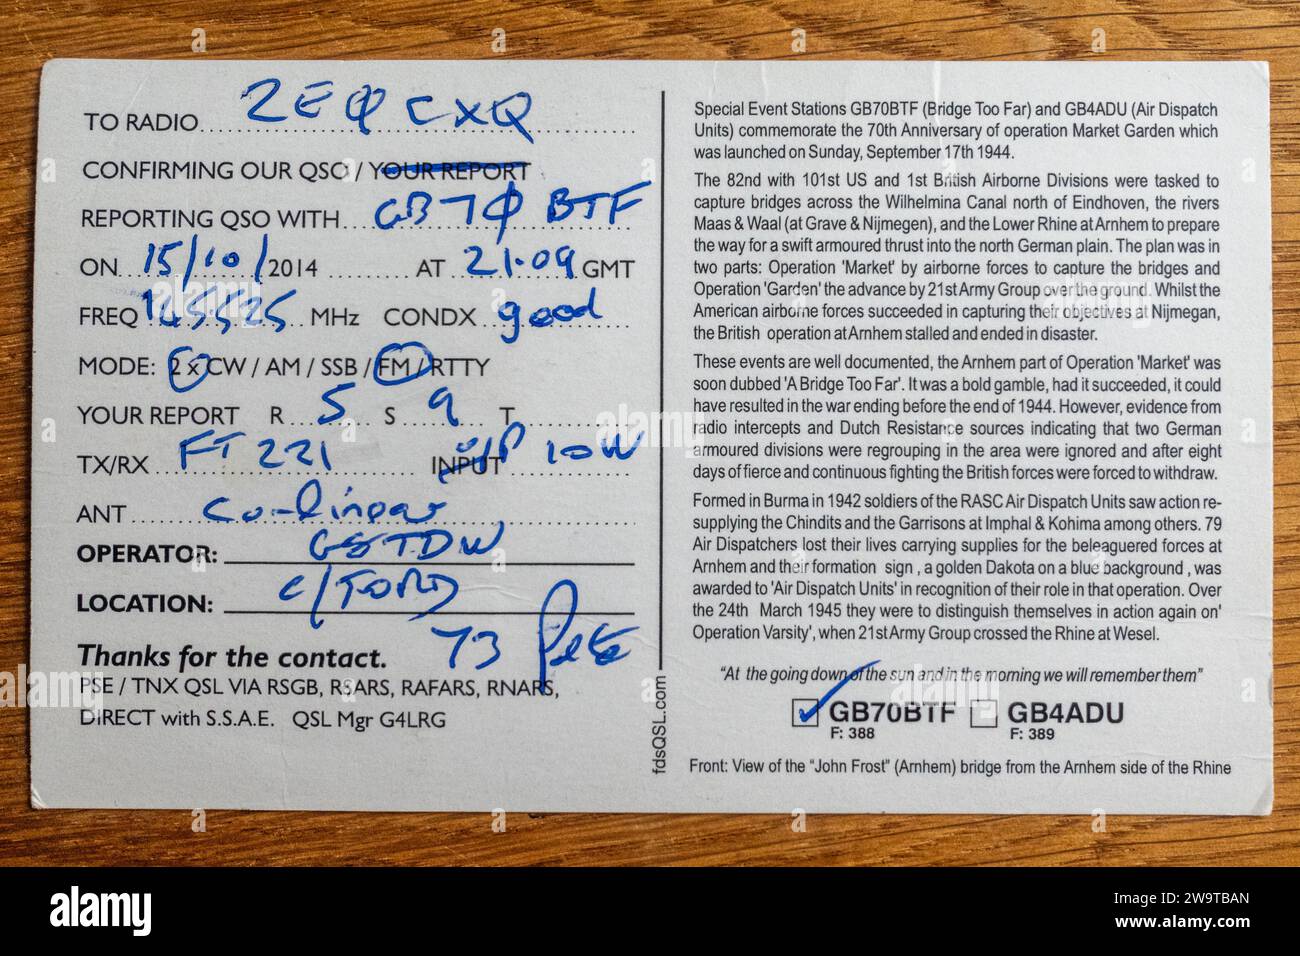 TO RADIO 2EØCXQ
CONFIRMING OUR QSO / YOUR REPORT
REPORTING QSO WITH GB7Ø BTF
ON 15/10/2014 AT 21.09 GMT
FREQ 145525 MHz CONDX good
MODE: 2 x CW / AM / SSB / FM / RTTY
YOUR REPORT R 5 S 9 T
TX/RX FT221 INPUT O/P 10W
ANT Co-linear
OPERATOR: G8TDW
LOCATION:
73 Pete
Thanks for the contact.
PSE / TNX QSL VIA RSGB, RSARS, RAFARS, RNARS,
DIRECT with S.S.A.E. QSL Mgr G4LRG
fdsQSL.com
Special Event Stations GB70BTF (Bridge Too Far) and GB4ADU (Air Dispatch
Units) commemorate the 70th Anniversary of operation Market Garden which
was launched on Sunday, September 17th 1944.
The 82nd with 101st US and 1st British Airborne Divisions were tasked to
capture bridges across the Wilhelmina Canal north of Eindhoven, the rivers
Maas & Waal (at Grave & Nijmegen), and the Lower Rhine at Arnhem to prepare
the way for a swift armoured thrust into the north German plain. The plan was in
two parts: Operation 'Market' by airborne forces to capture the bridges and
Operation 'Garden' the advance by 21st Army Group over the ground. Whilst the
American airborne forces succeeded in capturing their objectives at Nijmegan,
the British operation at Arnhem stalled and ended in disaster.
These events are well documented, the Arnhem part of Operation 'Market' was
soon dubbed 'A Bridge Too Far'. It was a bold gamble, had it succeeded, it could
have resulted in the war ending before the end of 1944. However, evidence from
radio intercepts and Dutch Resistance sources indicating that two German
armoured divisions were regrouping in the area were ignored and after eight
days of fierce and continuous fighting the British forces were forced to withdraw.
Formed in Burma in 1942 soldiers of the RASC Air Dispatch Units saw action re-
supplying the Chindits and the Garrisons at Imphal & Kohima among others. 79
Air Dispatchers lost their lives carrying supplies for the beleaguered forces at
Arnhem and their formation sign , a golden Dakota on a blue background , was
awarded to 'Air Dispatch Units' in recognition of their role in that operation. Over
the 24th March 1945 they were to distinguish themselves in action again on'
Operation Varsity', when 21st Army Group crossed the Rhine at Wesel.
"At the going down of the sun and in the morning we will remember them"
GB70BTF GB4ADU
F: 388 F: 389
Front: View of the "John Frost" (Arnhem) bridge from the Arnhem side of the Rhine
alamy
Image ID: 2W9TBAN
www.alamy.com